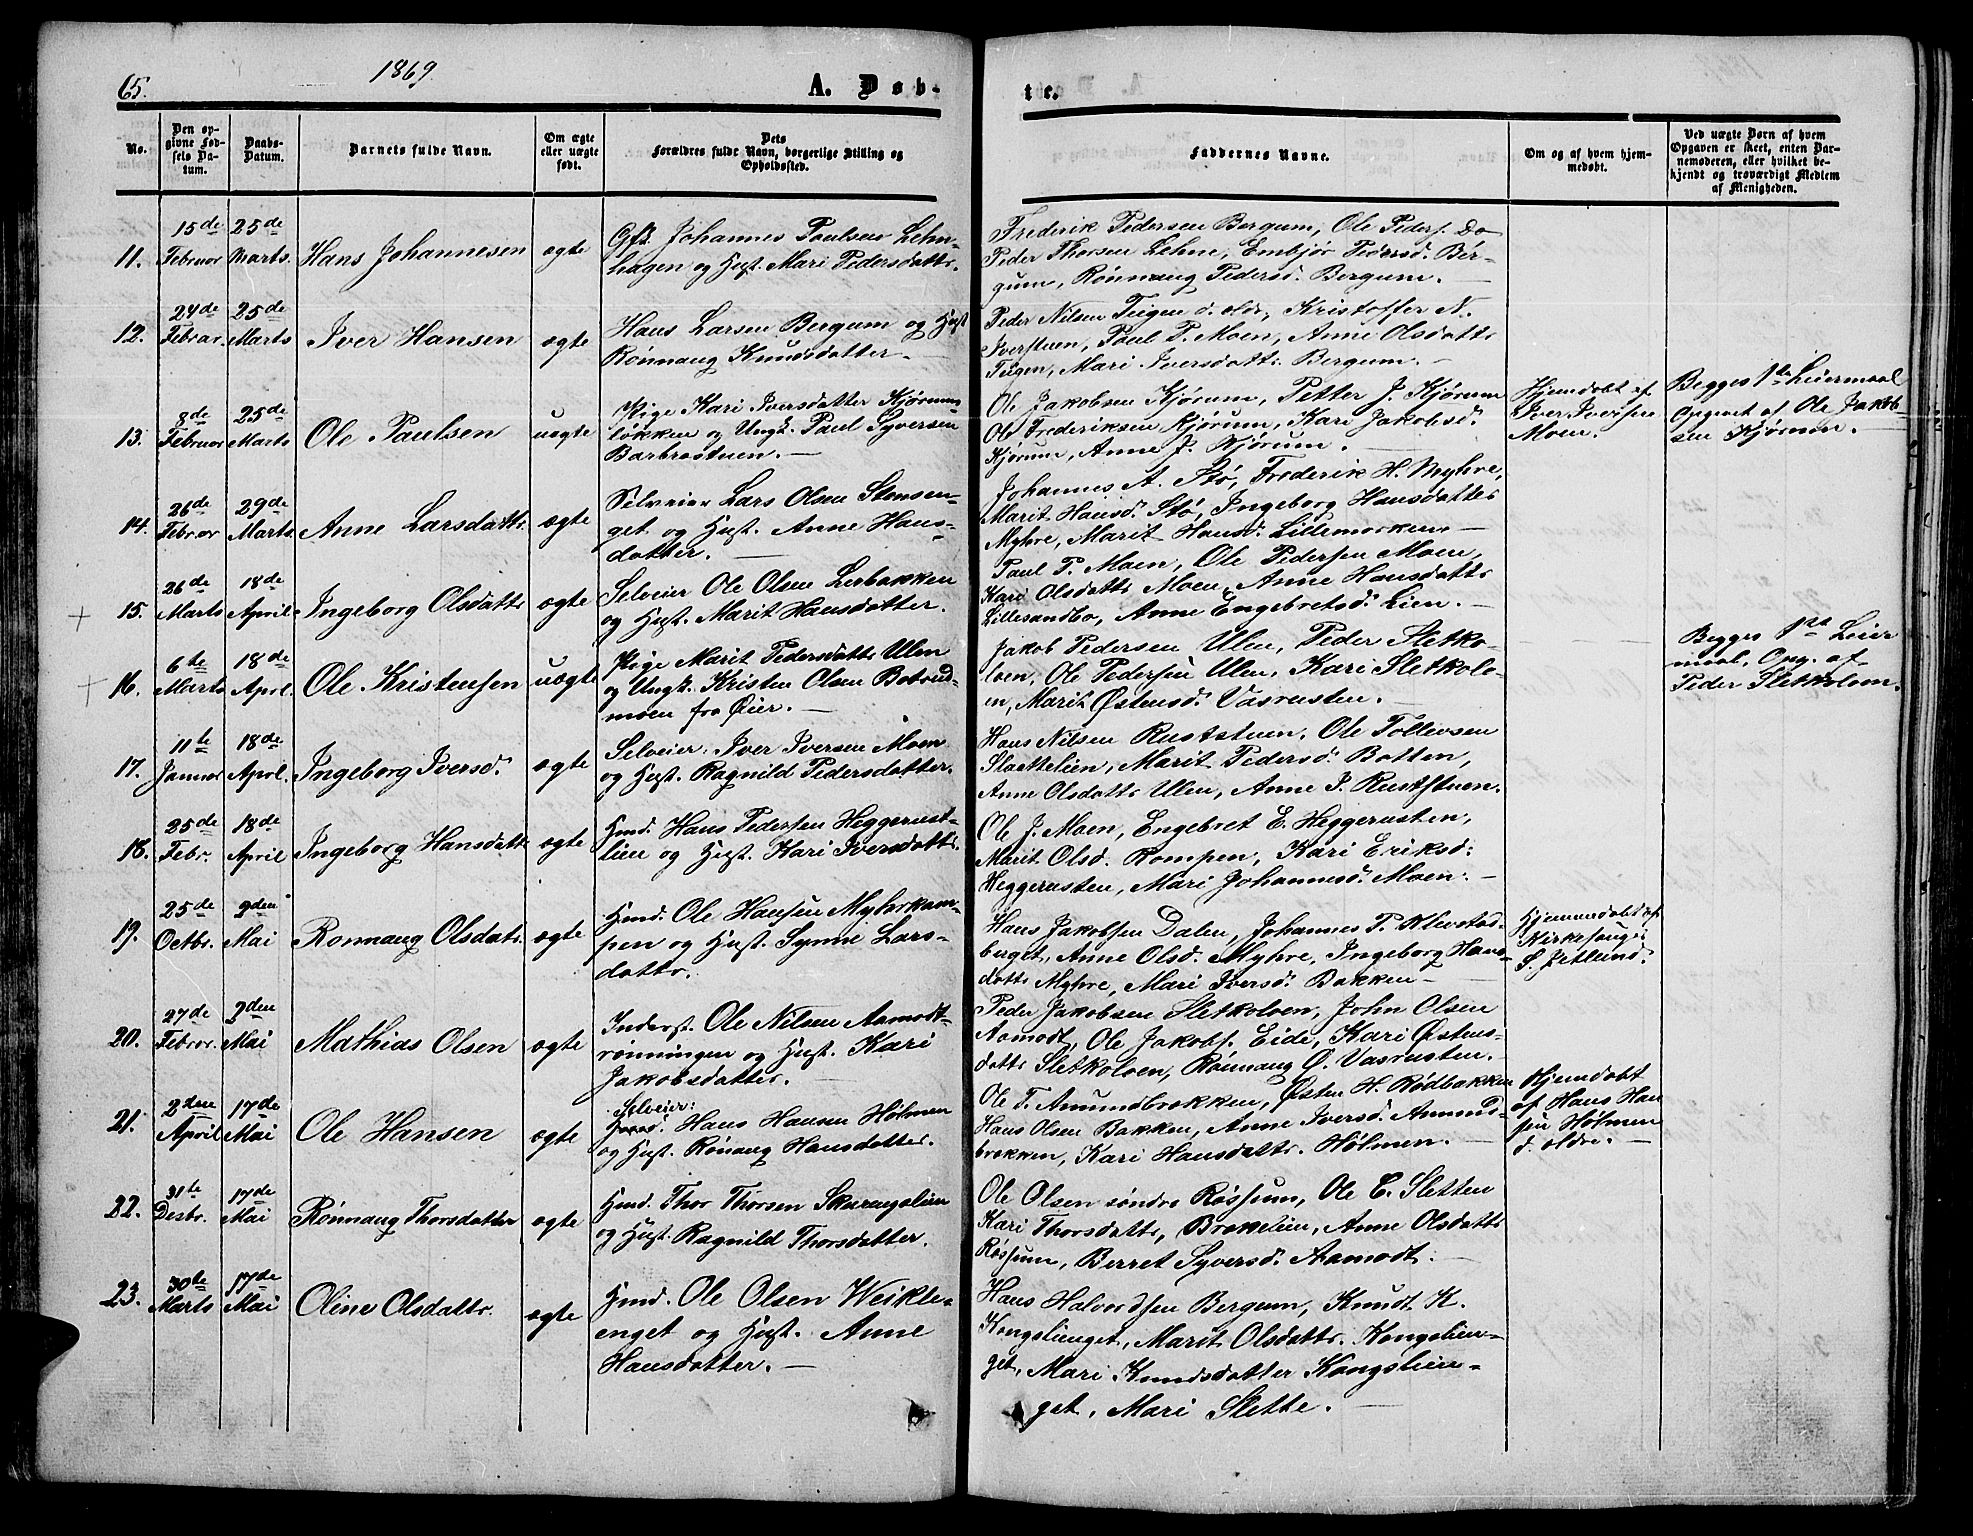 65.
1869.
A. Døb-
te.
No.
Den op-
givne Fød-
sels Da-
tum.
Daabs-
Datum.
Barnets fulde Navn.
Om ægte
eller uægte
født.
Dets
Forældres fulde Navn, borgerlige Stilling og
Opholdssted.
Faddernes Navne.
Om og af hvem hjem-
medøbt.
Ved uægte Børn af hvem
Opgaven er skeet, enten Bar-
nemoderen, eller hvilket be-
kjendt og troværdigt Medlem
af Menigheden.
11.
15de
Februar
25de
Marts.
Hans Johannesen
ægte
Gft. Johannes Paulsen Lehn-
hagen og Hust. Mari Pedersdattr.
Frederik Pedersen Bergum, Ole Peders. Do
Peder Thorsen Lehne, Embjør Tørrsd. Ber-
gum, Rønnaug Pedersd. Bergum. —
12.
24de
Februar
25de
Marts
Iver Hansen
ægte
Hans Larsen Bergum og Hust
Rønnaug Knudsdatter —
Peder Nilsen Teigen d. eldr., Kristoffer N.
Iverstuen, Paul P. Moen, Anne Olsdattr
Teigen, Mari Iversdattr. Bergum. —
13.
8de
Februar
25de
Marts
Ole Paulsen
uægte
Pige Kari Iversdatter Kjørum-
løkken og Ungk. Paul Syversen
Barbrastuen. —
Ole Jakobsen Kjørum, Petter J. Kjørum
Ole Frederiksen Kjørum, Kari Jakobsd.
Kjørum, Anne J. Kjørum.
Hjemdøbt af
Iver Iversen
Moen.
Begges 1ste Leiermaal
Opgivet af Ole Jakob-
sen Kjørum. —
14.
26de
Februar
29de
Marts.
Anne Larsdattr.
ægte
Selveier Lars Olsen Stensen-
get og Hust. Anne Hans-
datter. —
Johannes A. Stø, Frederik H. Myhre,
Marit Hansd. Stø, Ingeborg Hansdatter
Myhre, Marit Hansd. Lillemorken —
15.
26de
Marts
18de
April.
Ingeborg Olsdattr
ægte
Selveier Ole Olsen Lerbakken
og Hust. Marit Hansdatter.
Paul P. Moen, Ole Pedersen Moen,
Kari Olsdattr Moen, Anne Hansdattr
Lillesandbo, Anne Engebretsd. Lien. —
16.
6te
Marts
18de
April.
Ole Kristensen
uægte
Pige Marit Pedersdattr Ulen
og Ungk. Kristen Olsen Botrud-
moen fra Øier. —
Jakob Pedersen Ulen, Peder Sletko-
loen, Ole Pedersen Ulen, Kari Sletkolo-
en, Marit Østensd. Vasrusten. —
Begges 1ste Leier
maal. Opg. af
Peder Sletkoloen.
17.
11te
Januar
18de
April.
Ingeborg Iversd.
ægte
Selveier Iver Iversen Moen
og Hust. Ragnild Pedersdatter.
Hans Nilsen Ruststuen, Ole Tollevsen
Slaattelien, Marit Pedersd. Botten,
Anne Olsdattr Ulen, Anne I. Ruststuen.
18.
25de
Febr.
18de
April
Ingeborg Hansdattr.
ægte
Hmd. Hans Pedersen Heggerust-
lien og Hust. Kari Iversdattr.
Ole J. Moen, Engebret E. Heggerusten,
Marit Olsd. Rompen, Kari Eriksd:
Heggerusten, Mari Johannesd. Moen. —
19.
25de
Octbr.
2den
Mai
Rønnaug Olsdatr.
ægte
Hmd. Ole Hansen Myhrekam-
pen og Hust. Synne Lars-
dattr.
Hans Jakobsen Dalen, Johannes P. Klevstad-
berget, Anne Olsd. Myhre, Ingeborg Hans-
dattr Myhre, Mari Iversd. Bakken —
Hjemmedøbt af
Kirkesanger
S. Jetlund.
20.
27de
Februr.
2den
Mai
Mathias Olsen
ægte
Inderst. Ole Nilsen Aamodt-
rønningen og Hust. Kari
Jakobsdatter. —
Peder Jakobsen Sletkoloen, John Olsen
Aamodt, Ole Jakobs. Eide, Kari Østens-
dattr Sletkoloen, Rønnaug Ø. Vasrusten. —
21.
2den
April
17de
Mai
Ole Hansen
ægte
Selveier:
Hmd. Hans Hansen Hølmen
og Hust. Rønnaug Hansdatter.
Ole T. Amundbrækken, Østen H. Rødbakken
Hans Olsen Bakken, Anne Iversd. Amund-
brækken, Kari Hansdattr. Hølmen. —
Hjemdøbt
af Hans Han
sen Hølmen
d. ældre. —
22.
31te
Desbr.
17de
Mai
Rønnaug Thorsdatter
ægte
Hmd. Thor Thorsen Skurengslien
og Hust. Ragnild Thorsdatter.
Ole Olsen søndre Røssum, Ole E. Sletten
Kari Thorsdattr, Brækelien, Anne Olsdattr
Røssum, Berret Syversd. Aamodt.
23.
30te
Marts
17de
Mai
Oline Olsdattr.
ægte
Hmd. Ole Olsen Weikle-
enget og Hust. Anne
Hansdatter. —
Hans Halvordsen Bergum, Knudt K.
Kongslienget, Marit Olsdattr. Kongslien-
get, Mari Knudsdatter Kongslien-
get, Mari Slette. —